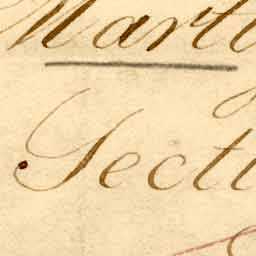 Marti
Secti